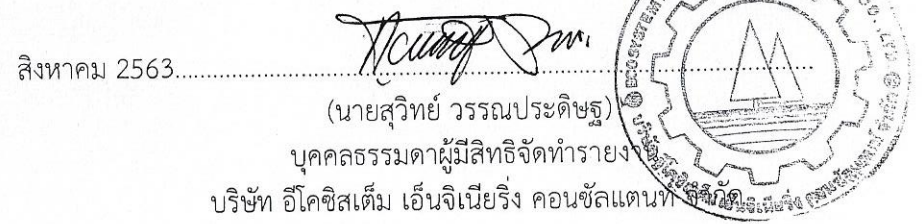 สิงหาคม 2563
(นายสุวิทย์ วรรณประดิษฐ)
บุคคลธรรมดาผู้มีสิทธิจัดทำรายงาน
บริษัท อีโคซิสเต็ม เอ็นจิเนียริ่ง คอนซัลแตนท์ จำกัด